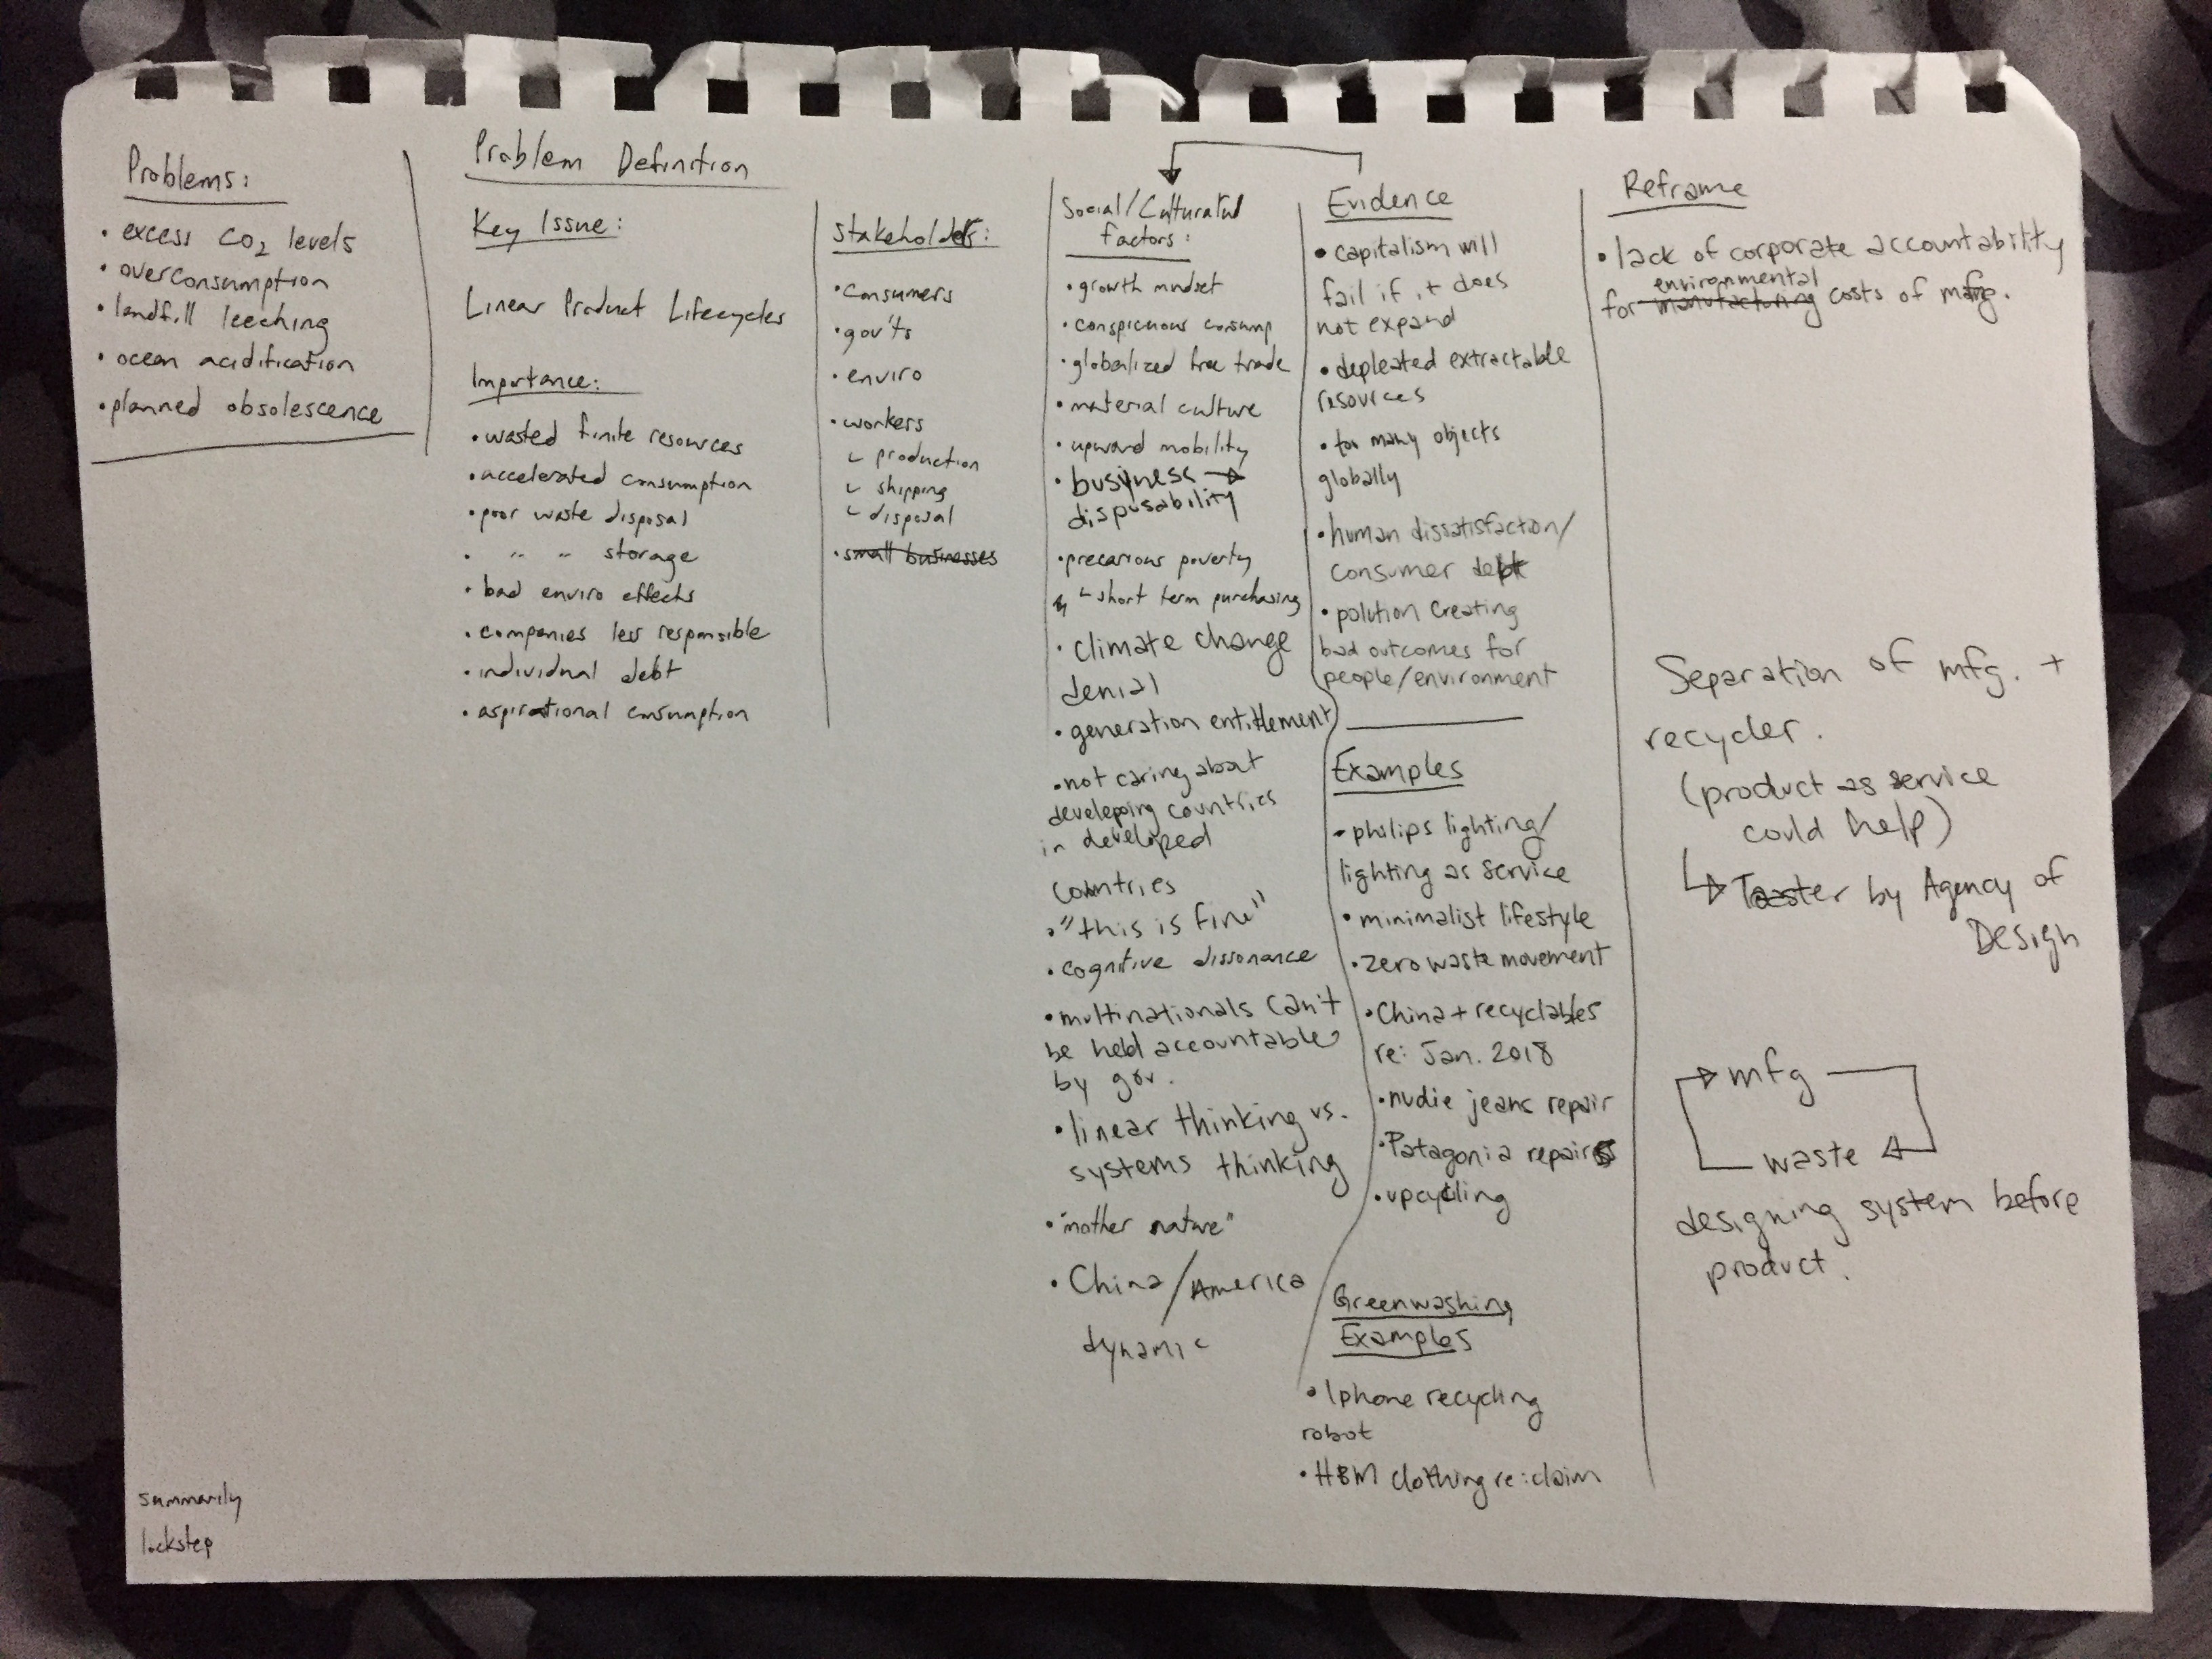 Problems:
• excess CO₂ levels
• overconsumption
• landfill leeching
• ocean acidification
• planned obsolescence
Problem Definition
Key Issue:
Linear Product Lifecycles
Importance:
• wasted finite resources
• accelerated consumption
• poor waste disposal
• " " storage
• bad enviro effects
• companies less responsible
• individual debt
• aspirational consumption
Stakeholders:
• consumers
• gov'ts
• enviro
• workers
↳ production
↳ shipping
↳ disposal
• small businesses
Social/Cultural
factors:
• growth mindset
• conspicuous consump
• globalized free trade
• material culture
• upward mobility
• busyness →
disposability
• precarious poverty
↳ short term purchasing
• climate change
denial
• generation entitlement
• not caring about
developing countries
in developed
countries
• "this is fine"
• cognitive dissonance
• multinationals can't
be held accountable
by gov.
• linear thinking vs.
systems thinking
• "mother nature"
• China/America
dynamic
Evidence
• capitalism will
fail if it does
not expand
• depleated extractable
resources
• too many objects
globally
• human dissatisfaction/
consumer debt
• polution creating
bad outcomes for
people/environment
Examples
- philips lighting/
lighting as service
• minimalist lifestyle
• zero waste movement
• China + recyclables
re: Jan. 2018
• nudie jeans repair
• Patagonia repairs
• upcycling
Greenwashing
Examples
• Iphone recycling
robot
• H&M clothing re:claim
Reframe
• lack of corporate accountability
environmental
for manufacturing costs of mfg.
Separation of mfg. +
recycler.
(product as service
could help)
↳ Toaster by Agency of
Design
→ mfg
waste ←
designing system before
product.
summarily
lockstep